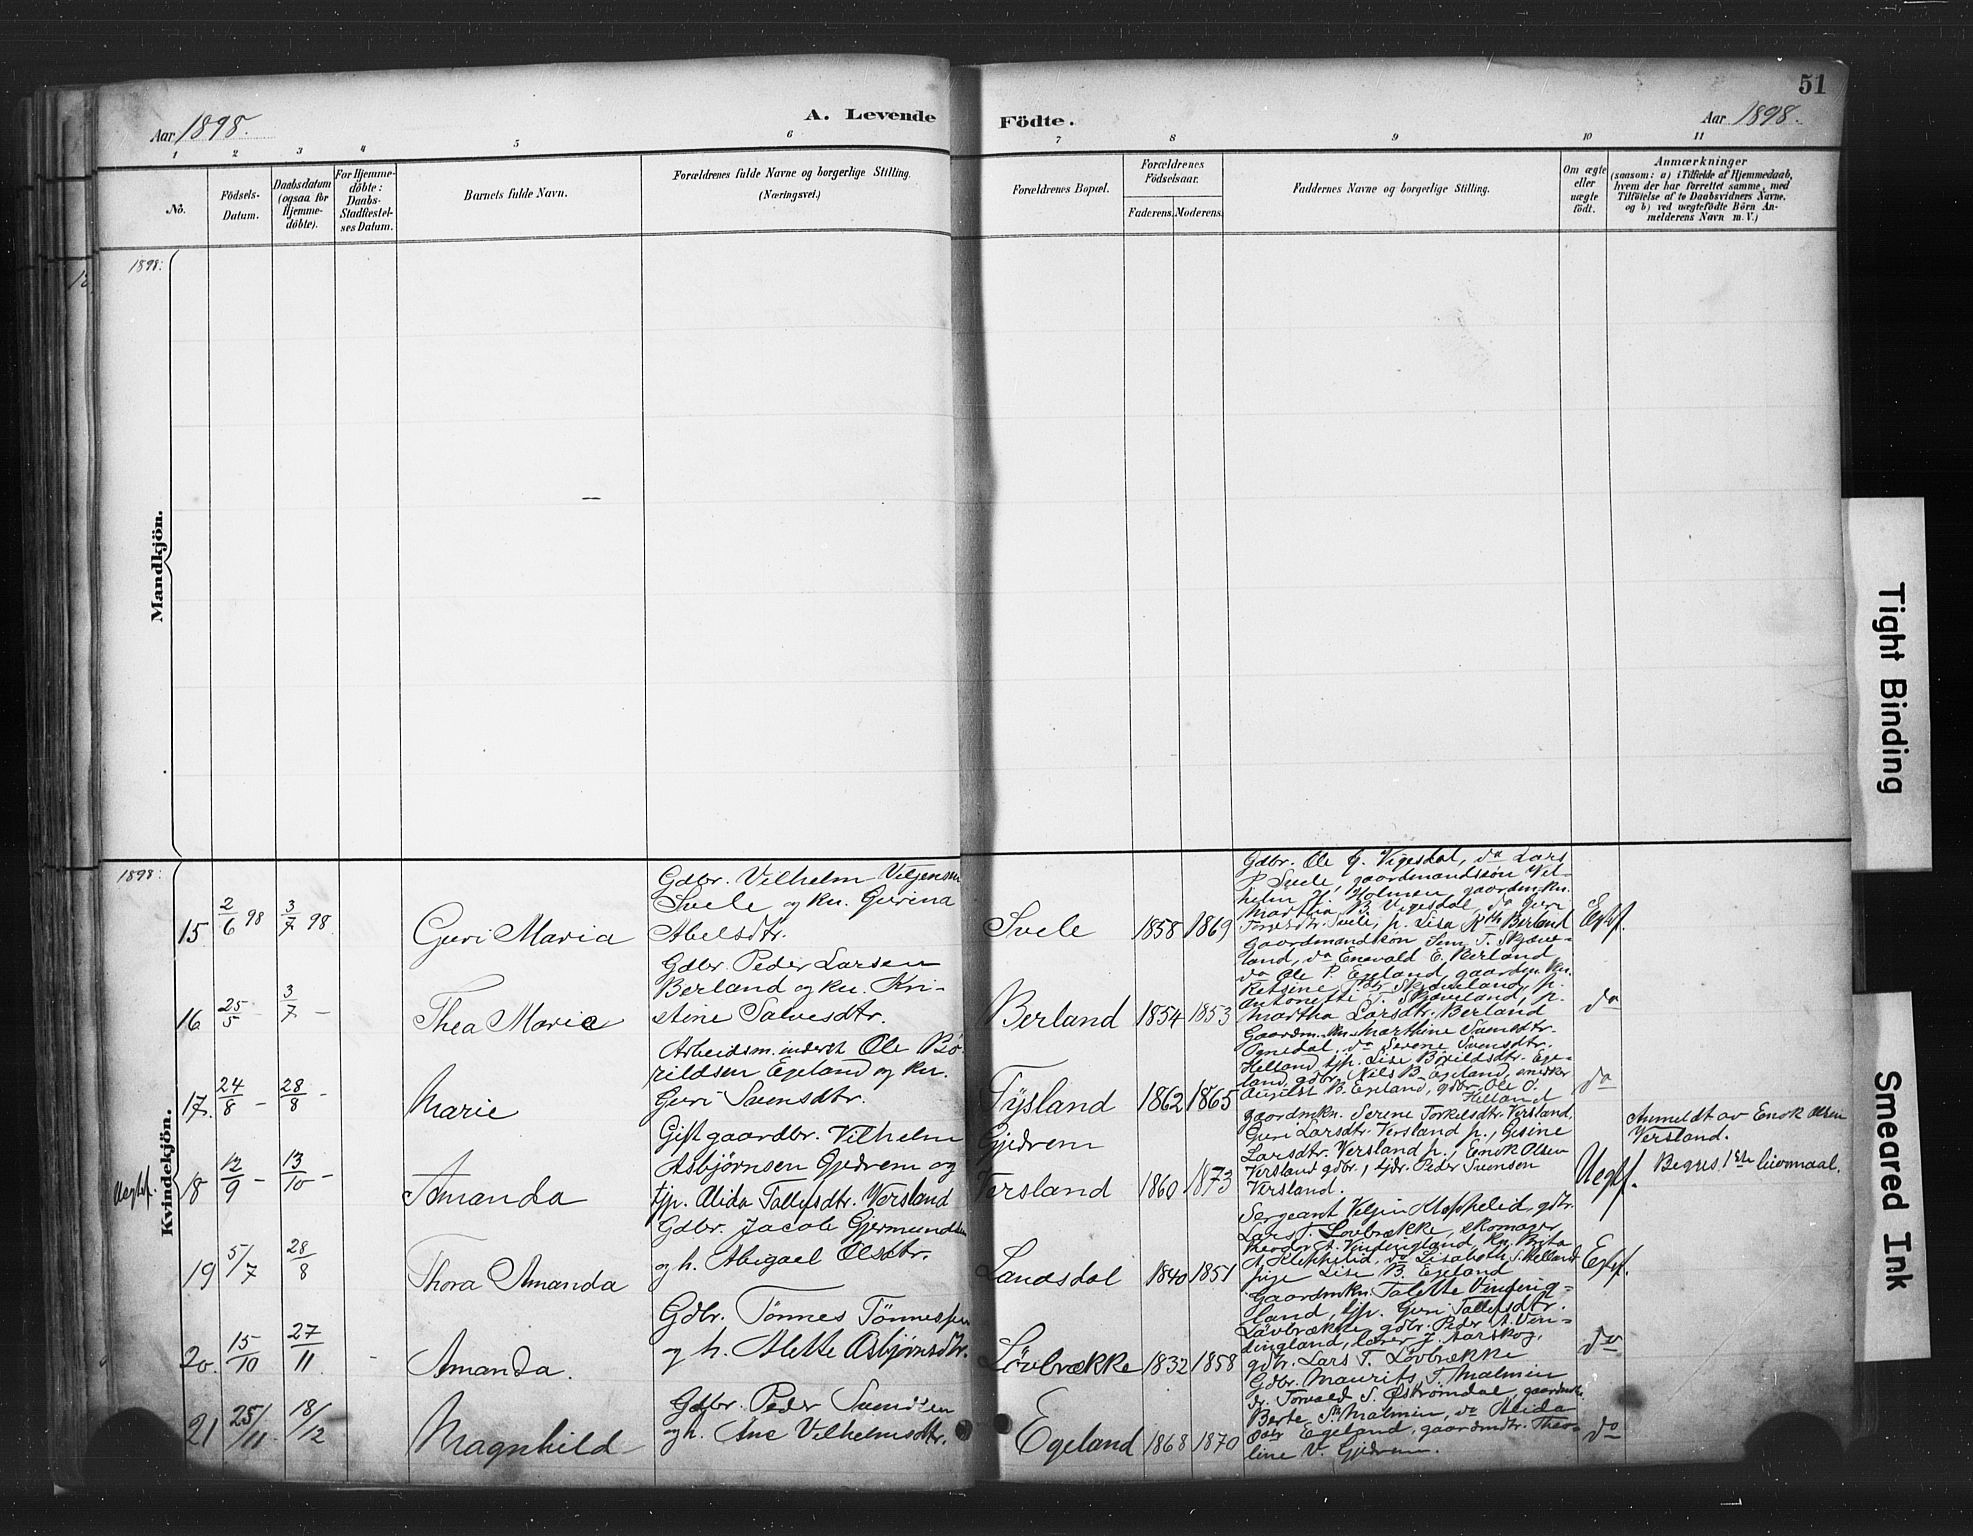 51
Aar 1898.
A. Levende
Födte.
Aar 1898.
1
2
3
4
5
6
7
8
9
10
11
No.
Födsels-
Datum.
Daabsdatum
(ogsaa for
Hjemme-
döbte).
For Hjemme-
döbte:
Daabs-
Stadfæstel-
ses Datum.
Barnets fulde Navn.
Forældrenes fulde Navne og borgerlige Stilling.
(Næringsvei.)
Forældrenes Bopæl.
Forældrenes
Födselsaar.
Faderens.
Moderens.
Faddernes Navne og borgerlige Stilling.
Om ægte
eller
uægte
födt.
Anmærkninger
(saasom: a) i Tilfælde af Hjemmedaab,
hvem der har forrettet samme, med
Tilföielse af to Daabsvidners Navne,
og b) ved uægtefödte Börn An-
melderens Navn m. V.)
1898.
Mandkjön.
1898.
Kvindekjön.
15
2/6 98
3/7 98
Guri Maria
Gdbr. Vilhelm Veljensen
Svele og ku. Gurina
Abelsdtr.
Svele
1858
1869
Gdbr. Ole G. Vigesdal, do Lars
P. Svele, gaardmandsön Vil-
helm H. Holmen, gaardm.kn.
Martha B. Vigesdal, do Guri
Toresdtr. Svele, p. Lisa Berland
Egtef.
16
25/5 -
3/7 -
Thea Marie
Gdbr. Peder Larsen
Berland og ku. Kri-
stine Salvesdtr.
Berland
1854
1853
Gaardmandsön Sem T. Skjæve-
land, do Enevald E. Berland
do Ole P. Egeland, gaardm. kn.
Skjæveland, p.
Antonette T. Skjæveland, p.
Martha Larsdtr. Berland
do
17.
24/8 -
28/8 -
Marie
Arbeidsm. inderst Ole Bö-
rildsen Egeland og ku.
Guri Svensdtr.
Tysland
1862
1865
Gaardm. kn. Marthine Svensdtr.
Ognedal, do Serene Svensdtr.
Helland, tjp. Lise Börildsdtr. Ege-
land, gdbr. Nils B. Egeland, snedker
August B. Egeland, gdbr. Ole O.
Helland
do
Uegtef.
18
12/9 -
13/10 -
Amanda
Gift gaardbr. Vilhelm
Asbjørnsen Gjedrem og
tjp. Alida Tallefsdtr. Versland
Gjedrem
Versland
1860
1873
gaardmkn. Serine Torkelsdtr. Versland,
Guri Larsdtr. Versland p., Gesine
Larsdtr. Versland p., Enok Olsen
Versland gdbr., tjdr. Peder Svensen
Versland.
Uegtef.
Anmeldt av Enok Olsen
Versland.
Begges 1ste leiermaal.
19
5/7
28/8
Thora Amanda
Gdbr. Jacob Gjermundsen
og h. Abigael Olsdtr.
Landsdal
1840
1851
Sergeant Veljen Kleppelid, gdbr.
Lars T. Lövbrække, skomager
Theodor A. Vindingland, kn. Brita
A. Kleppelid, do Lisabeth S. Helland
pige Lise B. Egeland
Egtef.
20.
15/10
27/11
Amanda.
Gdbr. Tönnes Tönnessen
og h. Alette Asbjørnsdtr.
Lövbrække
1832
1858
Gaardmkn. Talette Vinding-
land, tjp. Guri Tallefsdtr.
Lövbrække, gdbr. Peder A. Vin-
dingland, lærer J. Aarskog,
gdbr. Lars T. Lövbrække
do
21
25/11
18/12
Magnhild
Gdbr. Peder Svendsen
og h. Ane Vilhelmsdtr.
Egeland
1868
1870
Gdbr. Maurits T. Malmin
do Torvald S. Østrømdal, gaardmkn.
Berte Malmin, do Alida
Egeland, gaardmdtr. Theo-
line V. Gjedrem.
do
Tight Binding
Smeared Ink